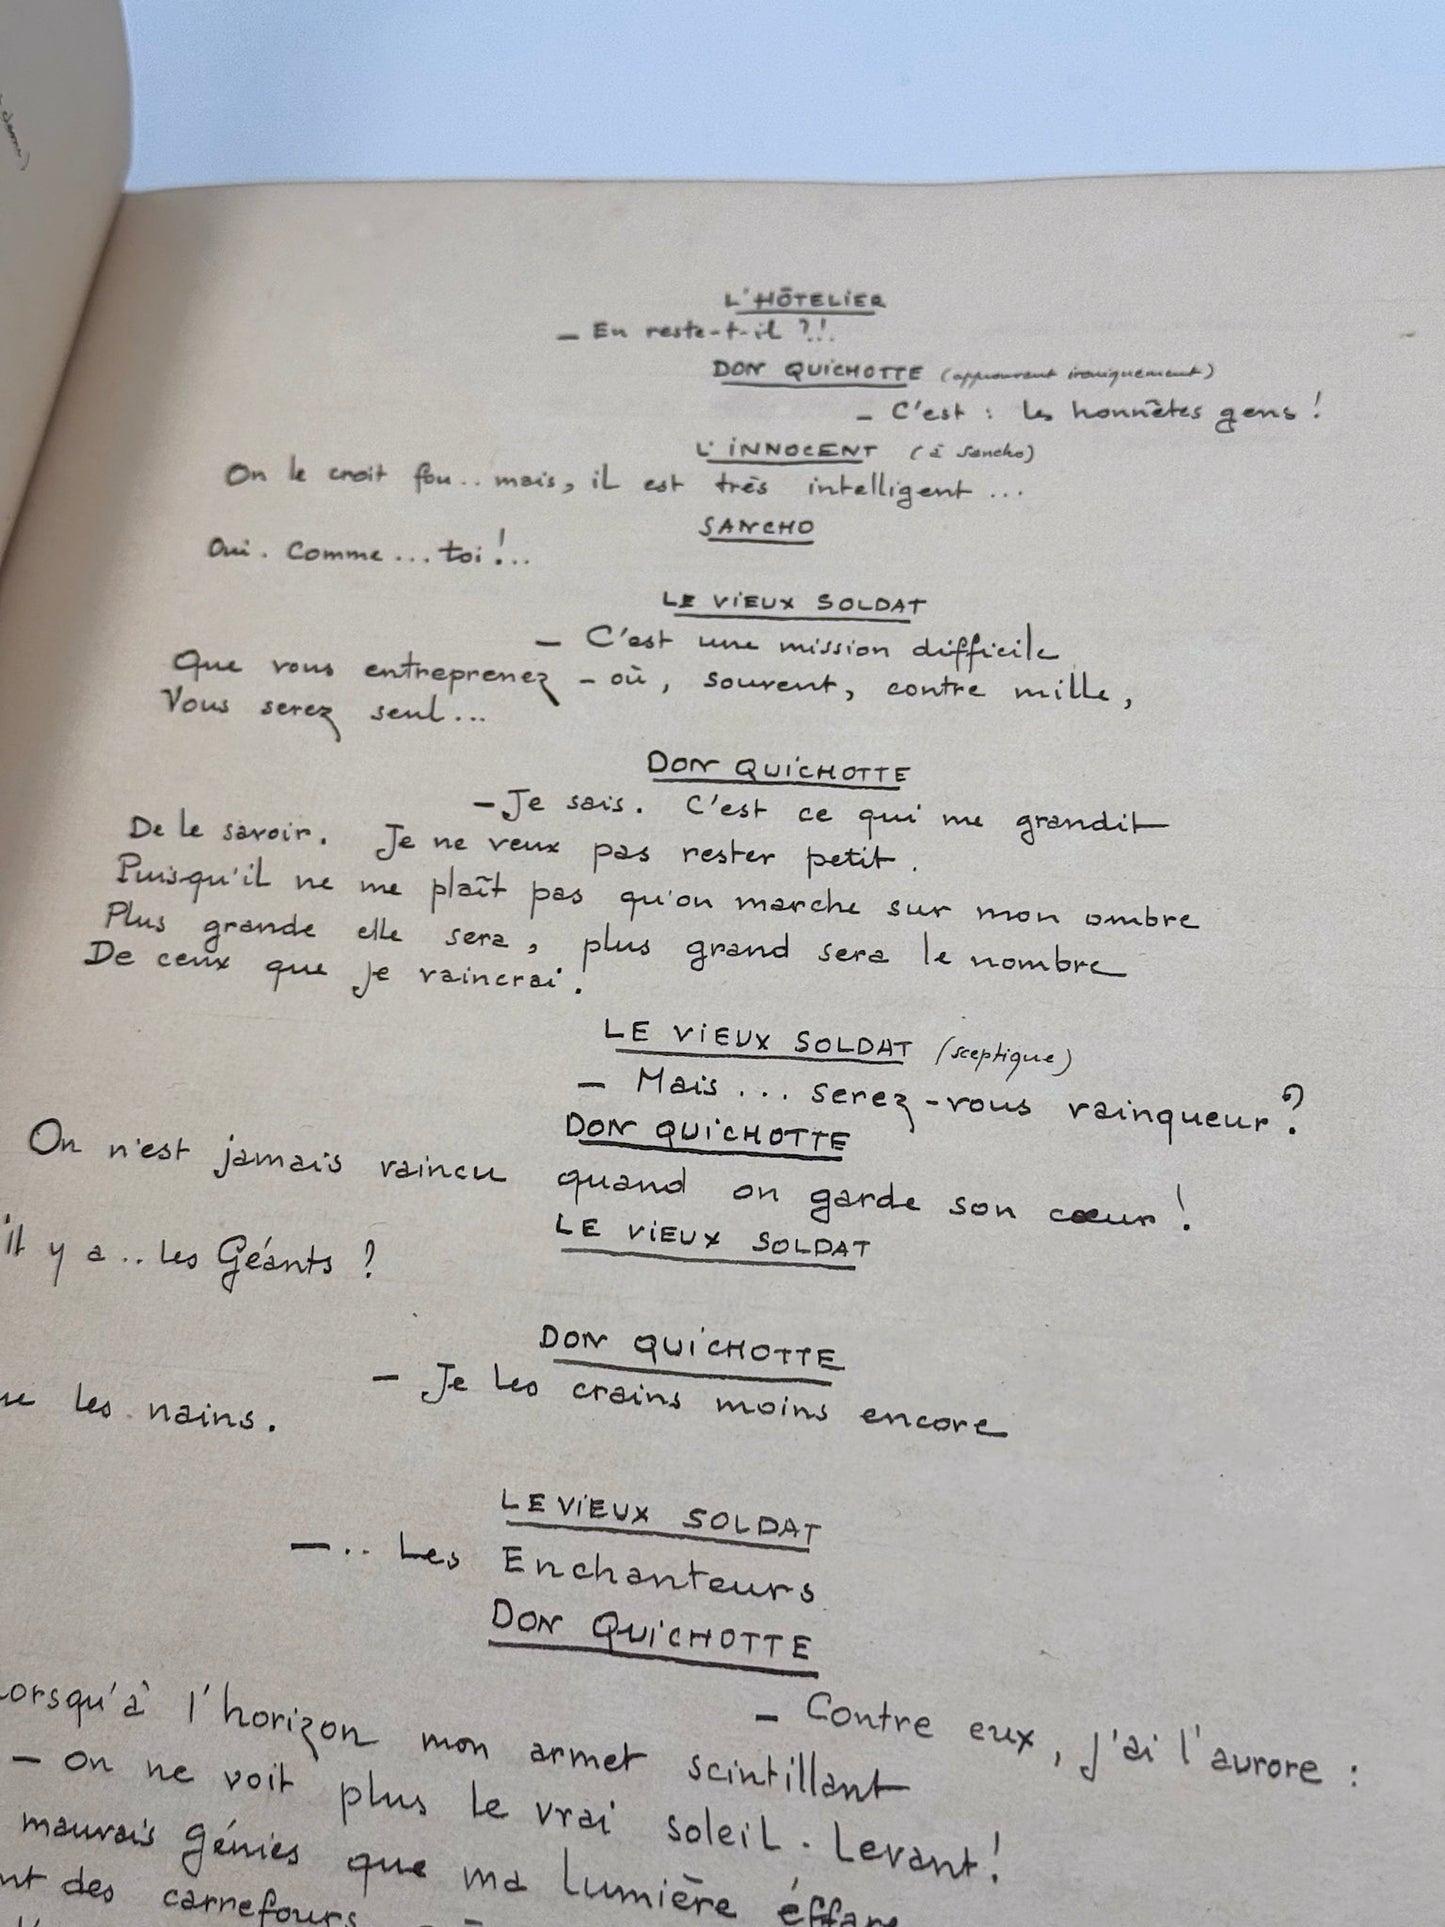 L'HÔTELIER
— En reste-t-il ?!.
DON QUICHOTTE (approuvant ironiquement)
— C'est : les honnêtes gens !
L'INNOCENT (à Sancho)
On le croit fou.. mais, il est très intelligent ...
SANCHO
Oui. Comme ... toi !..
LE VIEUX SOLDAT
— C'est une mission difficile
Que vous entreprenez - où, souvent, contre mille,
Vous serez seul...
DON QUICHOTTE
— Je sais. C'est ce qui me grandit
De le savoir. Je ne veux pas rester petit.
Puisqu'il ne me plaît pas qu'on marche sur mon ombre
Plus grande elle sera, plus grand sera le nombre
De ceux que je vaincrai.
LE VIEUX SOLDAT (sceptique)
— Mais ... serez-vous vainqueur ?
DON QUICHOTTE
On n'est jamais vaincu quand on garde son cœur !
LE VIEUX SOLDAT
il y a .. les Géants ?
DON QUICHOTTE
— Je les crains moins encore
les nains.
LE VIEUX SOLDAT
—.. Les Enchanteurs
DON QUICHOTTE
— Contre eux, j'ai l'aurore :
Lorsqu'à l'horizon mon armet scintillant
— On ne voit plus le vrai soleil. Levant !
mauvais génies que ma lumière
des carrefours